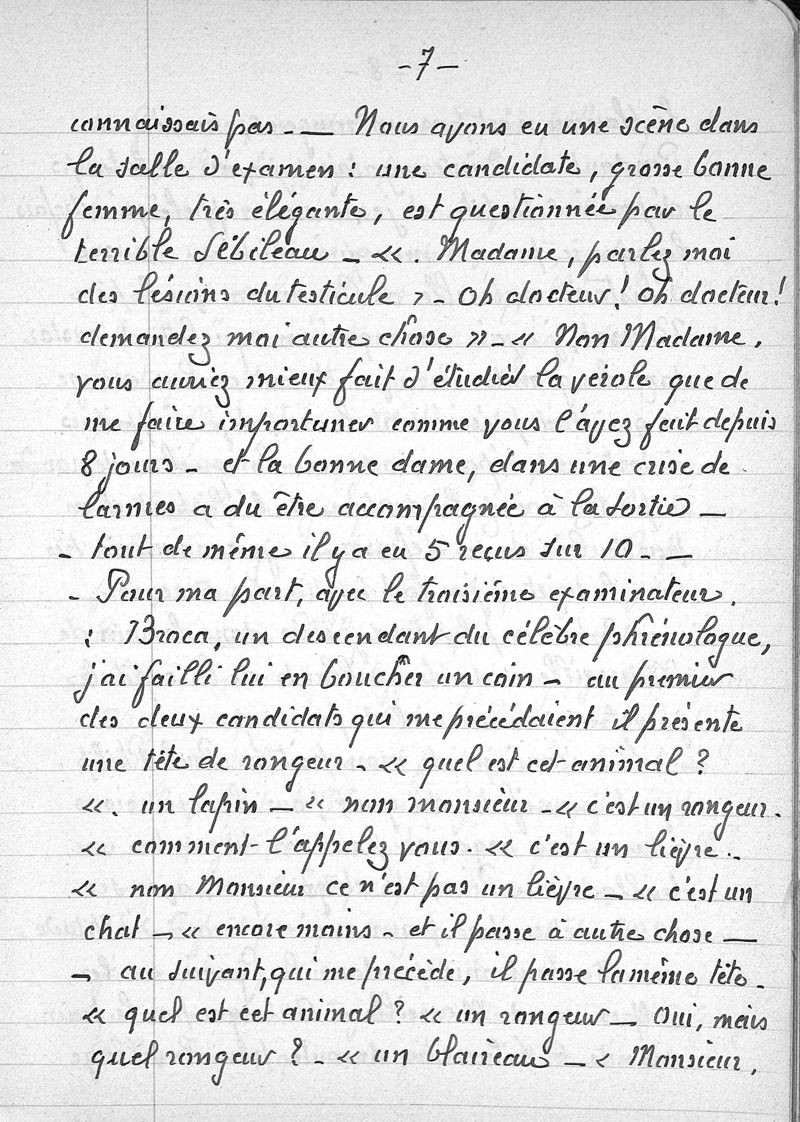 - 7 -
connaissais pas - — Nous avons eu une scène dans
la salle d'examen : une candidate, grosse bonne
femme, très élégante, est questionnée par le
terrible Sébileau - «. Madame, parlez moi
des lésions du testicule » - oh docteur ! oh docteur !
demandez moi autre chose » - « Non Madame,
vous auriez mieux fait d'étudier la verole que de
me faire importuner comme vous l'avez fait depuis
8 jours - et la bonne dame, dans une crise de
larmes a du être accompagnée à la sortie —
- tout de même il y a eu 5 reçus sur 10 - —
- Pour ma part, avec le troisième examinateur.
: Broca, un descendant du célèbre phrénologue,
j'ai failli lui en boucher un coin - au premier
des deux candidats qui me précédaient il présente
une tête de rongeur - « quel est cet animal ?
«. un lapin — « non monsieur - « c'est un rongeur.
« comment l'appelez vous. « c'est un lièvre .-
« non Monsieur ce n'est pas un lièvre - « c'est un
chat - « encore moins - et il passe à autre chose —
- au suivant, qui me précède, il passe la même tête -
« quel est cet animal ? « un rongeur - Oui, mais
quel rongeur ? - « un blaireau - « Monsieur,